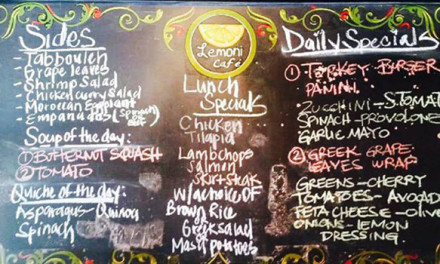 Sides
- Tabbouleh
- Grape leaves
- Shrimp Salad
- Chicken curry salad
- Moroccan Eggplant
- Empanadas (spinach
beef
Soup of the day:
① BUTTERNUT SQUASH
② TOMATO
Quiche of the day:
Asparagus - Quinoa
Spinach
Lemoni
Café
Lunch
Specials
Chicken
Tilapia
Lambchops
Salmon
Skirt steak
w/a choice OF
Brown Rice
Greek salad
Mash potatoes
Daily Specials
① TURKEY BURGER
PANINI
ZUCCHINI - S. TOMATO
SPINACH PROVOLONE
GARLIC MAYO
② GREEK GRAPE
LEAVES WRAP
GREENS - CHERRY
TOMATOES - AVOCAD
FETA CHEESE - olive
ONIONS - LEMON
DRESSING.